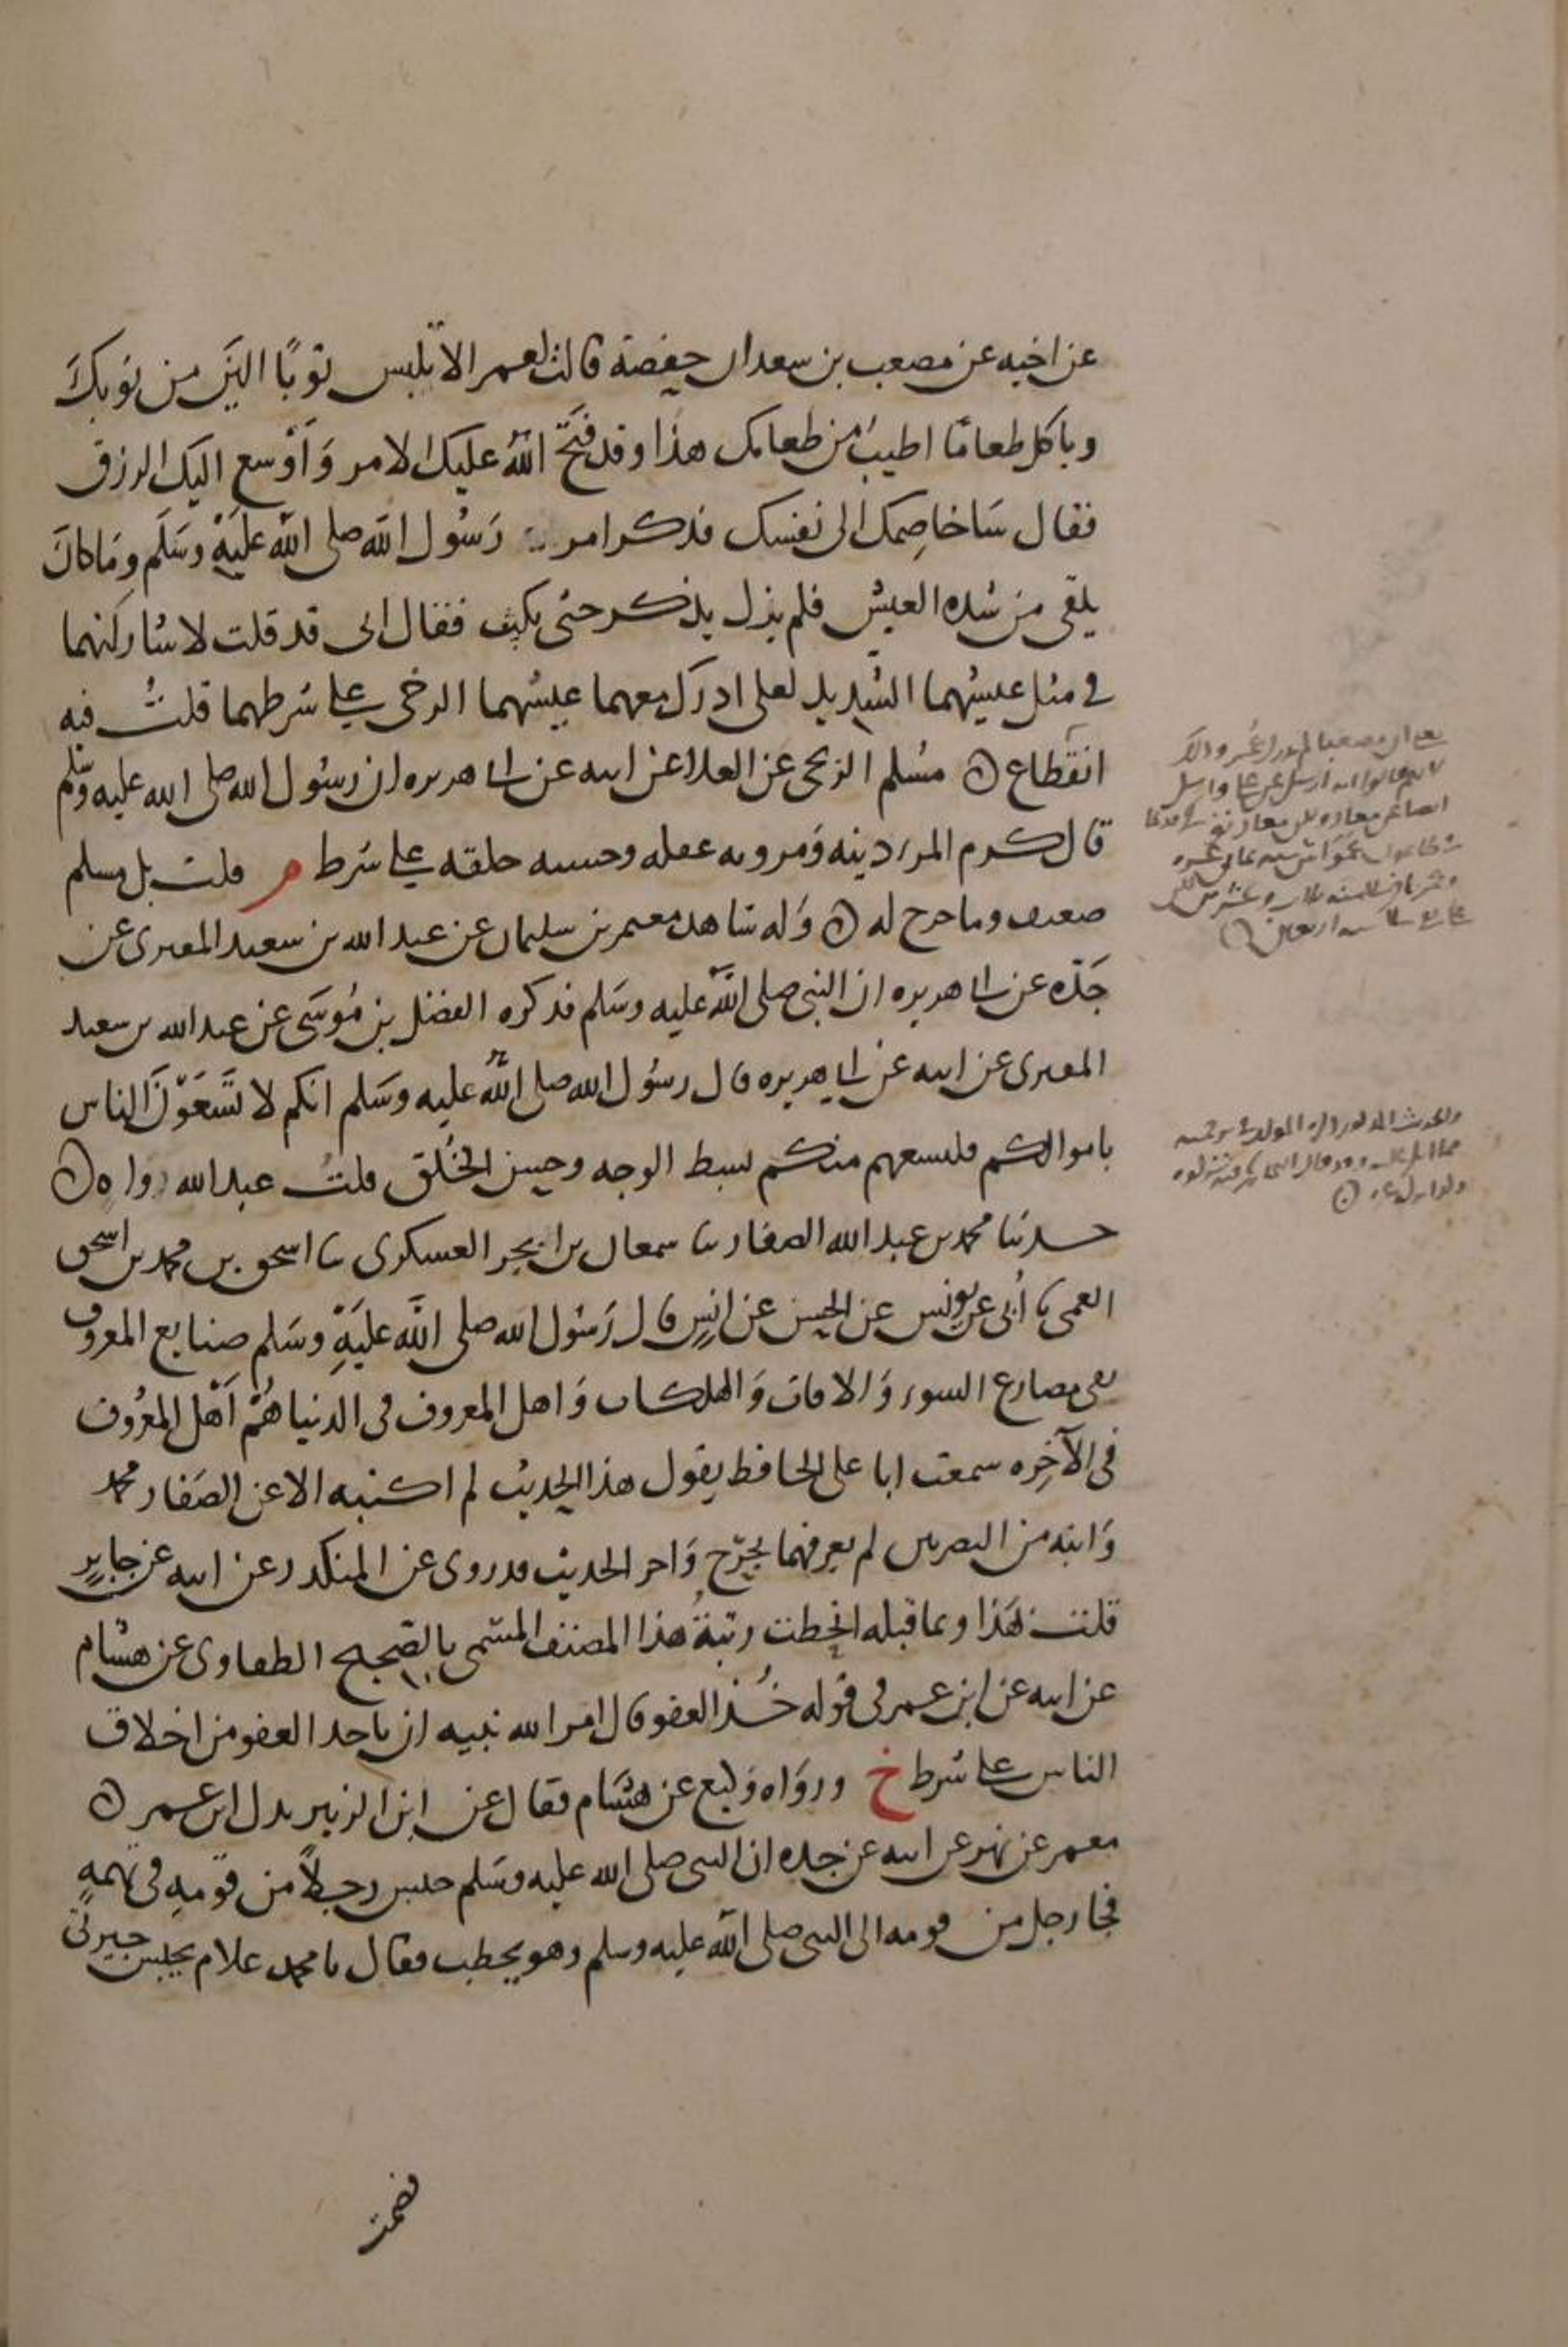 عن اخيه عن مصعب بن سعد ان حفصة قالت لعمر الا تلبس ثوبًا الين من ثوبك
وتاكل طعامًا اطيب من طعامك هذا وقد فتح الله عليك الامر وَاَوْسع اليك الرزق
فقال سَاخاصِمك الى نفسك فذكر امر رَسُول الله صلى الله عليه وسَلم ومَا كانَ
يلقى من شده العيش فلم يزل يذكر حتى بكت فقال انى قد قلت لاشاركنهما
فى مثل عيشهما الشديد لعلى ادرك معهما عيشهما الرخى على شرطهما قلتُ فيه
انقطاع ۞ مسُلم الزنجى عن العلا عن ابيه عن ابى هريره ان رسُول الله صلى الله عليه وسَلم
قال كرم المرء دينه وَمروءته عقله وحسبه خلقه على شرط م قلت بل مسلم
ضعيف وما خرج له ۞ وَله شاهد معمر بن سليمان عن عبد الله بن سعيد المقبرى عن
جَدّه عن ابى هريره ان النبى صلى الله عليه وسَلم فذكره الفضل بن مُوسَى عن عبد الله بن سعيد
المقبرى عن ابيه عن ابى هريره قال رسُول الله صلى الله عليه وسَلم انكم لا تَسَعَوْنَ الناس
باموالكم فليسعهم منكم بسط الوجه وحسن الخُلق قلتُ عبد الله واهٍ ۞
حدثنا محمد بن عبد الله الصفار ثنا بحر العسكرى ثنا اسحق بن محمد بن اسحق
العمى ثنا اُبى عن يونس عن الحسن عن انسٍ قال رَسُول الله صلى الله عليهِ وسَلم صنايع المعروف
تقى مصارع السوء وَالافات وَالهلكات وَاهل المعروف فى الدنيا هُمْ اَهْل المعرُوف
فى الآخِره سمعت ابا على الحافظ يقول هذا الحديث لم اكتبه الا عن الصَفار ومحمد
وَابنه من البصريين لم يعرفهما بجرْح وَاخر الحديث قد روى عن المنكدر عن ابيه عن جابرٍ
قلت لهَذا وبما قبله انحطت رتبةُ هذا المصنف المسَمى بالصحيح الطفاوى عن هشام
عن ابيه عن ابن عمر فى قوله خُذ العفو قال امَر الله نبيه ان ياخذ العفو من اخلاق
الناس على شرط خ ورَواه وَكيع عن هشَام فقال عن ابن الزبير بدل ابن عمر ۞
معمر عن بهز عن ابيه عن جده ان النبى صلى الله عليه وسَلم حبس رجلاً من قومهِ فى تهمةٍ
فجا رجل من قومه الى النبى صلى الله عليه وسلم وهو يخطب فقال يا محمد علام تحبس جيرتى